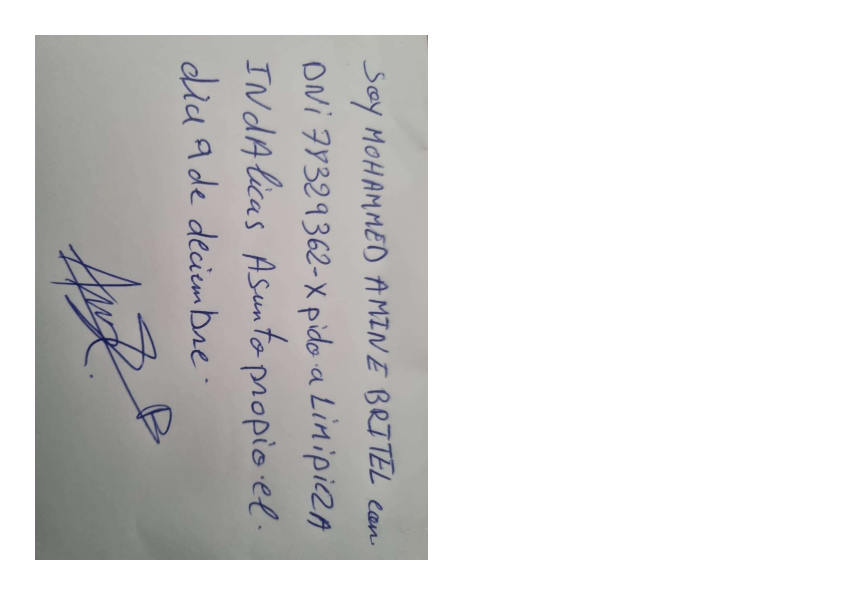 Soy MOHAMMED AMINE BRITEL con
DNi 78329362-X pido a LimipiezA
INdAlicas Asunto propio el.
dia 9 de deciembre.